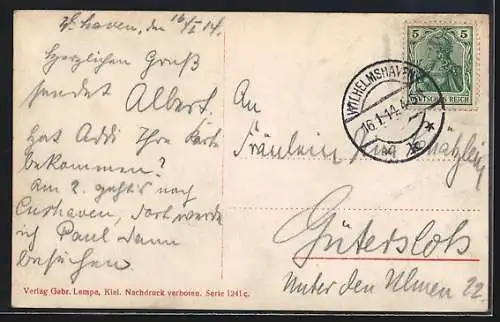 W'haven, den 16/I 14.
Herzlichen Gruß
sendet Albert.
hat Addi Ihre Karte
bekommen?
Am 2. geht's nach
Cuxhaven, dort werde
ich Paul dann
besuchen.
Verlag Gebr. Lempe, Kiel. Nachdruck verboten. Serie 1241c.
5 5
DEUTSCHES REICH
WILHELMSHAVEN
16.1.14.
An
Fräulein
Gütersloh
Unter den Ulmen 22.